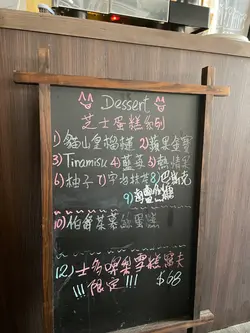 Dessert
芝士蛋糕系列
1) 貓山皇榴槤 2) 蘋果金寶
3) Tiramisu 4) 藍莓 5) 熱情果
6) 柚子 7) 宇治抹茶 8) 巴斯克
9)
10) 伯爵茶慕絲蛋糕
12) 士多啤梨雪糕窩夫
!!! 限定 !!! $68